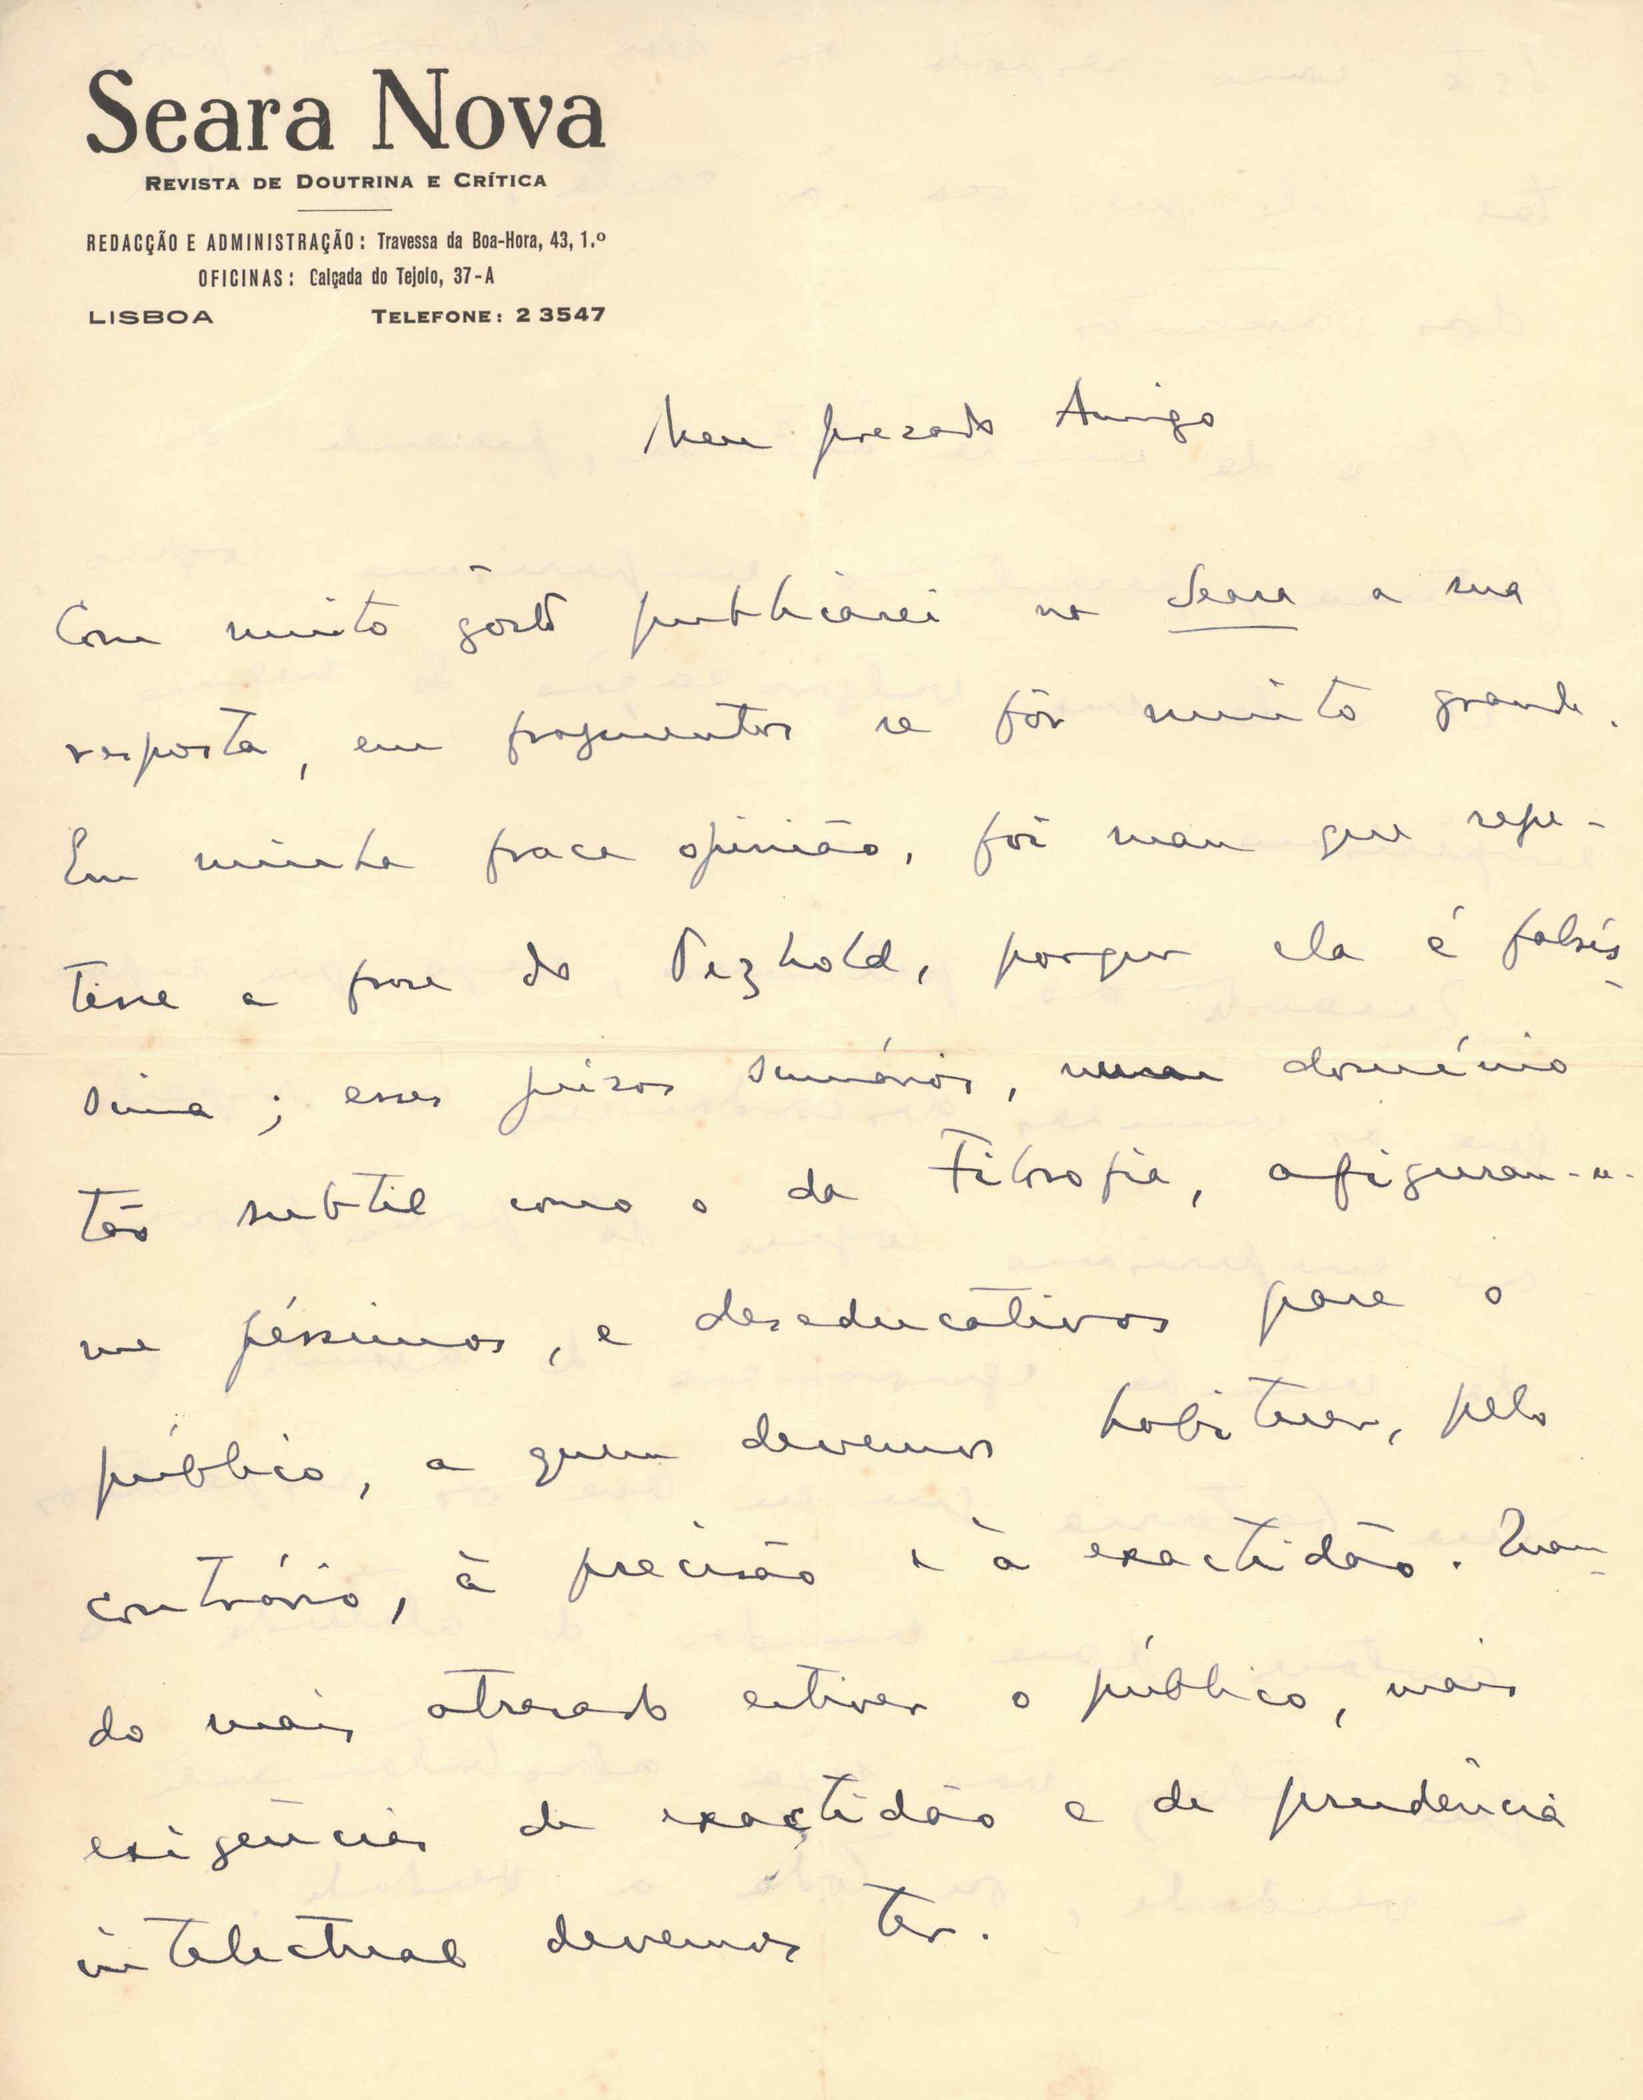 Seara Nova
REVISTA DE DOUTRINA E CRÍTICA
REDACÇÃO E ADMINISTRAÇÃO: Travessa da Boa-Hora, 43, 1.º
OFICINAS: Calçada do Tejolo, 37-A
LISBOA TELEFONE: 2 3547
Meu prezado Amigo
Com muito gôsto publicarei na Seara a sua
resposta, em fragmentos se fôr muito grande.
Em minha fraca opinião, foi mau que repe-
tisse a frase do Petzhold, porque ela é falsís-
sima; esses juízos sumários, num domínio
tão subtil como o da Filosofia, afiguram-se-
me péssimos, e deseducativos para o
público, a quem devemos habituar, pelo
contrário, à precisão e à exactidão. Quan-
do mais atrasado estiver o público, mais
exigências de exactidão e de prudência
intelectual devemos ter.